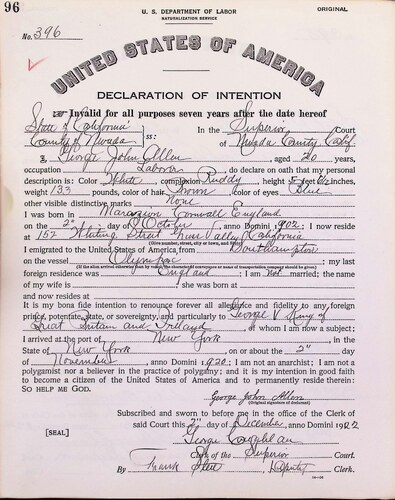 96
U. S. DEPARTMENT OF LABOR
NATURALIZATION SERVICE
ORIGINAL
No. 396
UNITED STATES OF AMERICA
DECLARATION OF INTENTION
Invalid for all purposes seven years after the date hereof
State of California
County of Nevada
ss:
In the Superior Court
of Nevada County Calif.
I, George John Allen, aged 20 years,
occupation Laborer, do declare on oath that my personal
description is: Color White, complexion Ruddy, height 5 feet inches,
weight 133 pounds, color of hair Brown, color of eyes Blue
other visible distinctive marks None
I was born in Marazion Cornwall England
on the 2" day of October, anno Domini 1902; I now reside
at 152 Street Grass Valley, California
(Give number, street, city or town, and State.)
I emigrated to the United States of America from Southampton
on the vessel Olympic; my last
(If the alien arrived otherwise than by vessel, the character of conveyance or name of transportation company should be given.)
foreign residence was England; I am not married; the name
of my wife is ; she was born at
and now resides at
It is my bona fide intention to renounce forever all allegiance and fidelity to any foreign
prince, potentate, state, or sovereignty, and particularly to George V King of
Great Britain and Ireland, of whom I am now a subject;
I arrived at the port of New York, in the
State of New York, on or about the 2" day
of November, anno Domini 1920; I am not an anarchist; I am not a
polygamist nor a believer in the practice of polygamy; and it is my intention in good faith
to become a citizen of the United States of America and to permanently reside therein:
SO HELP ME GOD.
George John Allen
(Original signature of declarant.)
Subscribed and sworn to before me in the office of the Clerk of
said Court this 2" day of December, anno Domini 1922
[SEAL]
George Coughlan
Clerk of the Superior Court.
By Frank Steel, Deputy Clerk.